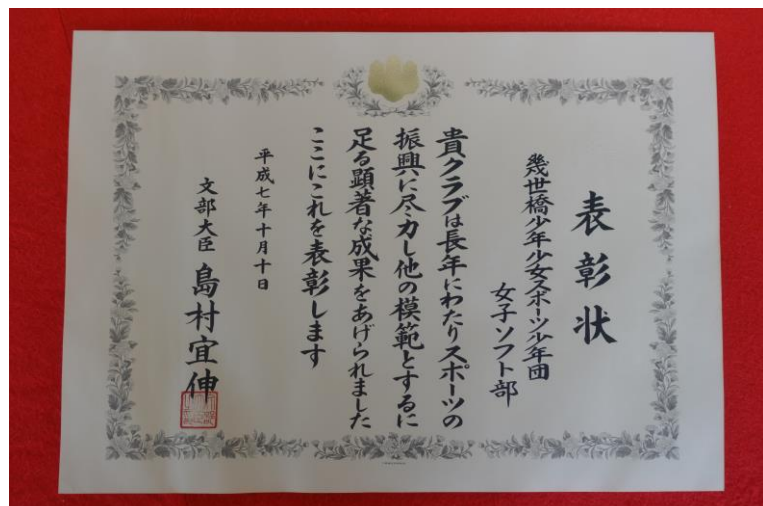 表彰状
幾世橋少年少女スポーツ少年団
女子ソフト部
貴クラブは長年にわたりスポーツの
振興に尽力し他の模範とするに
足る顕著な成果をあげられました
ここにこれを表彰します
平成七年十月十日
文部大臣 島村宜伸